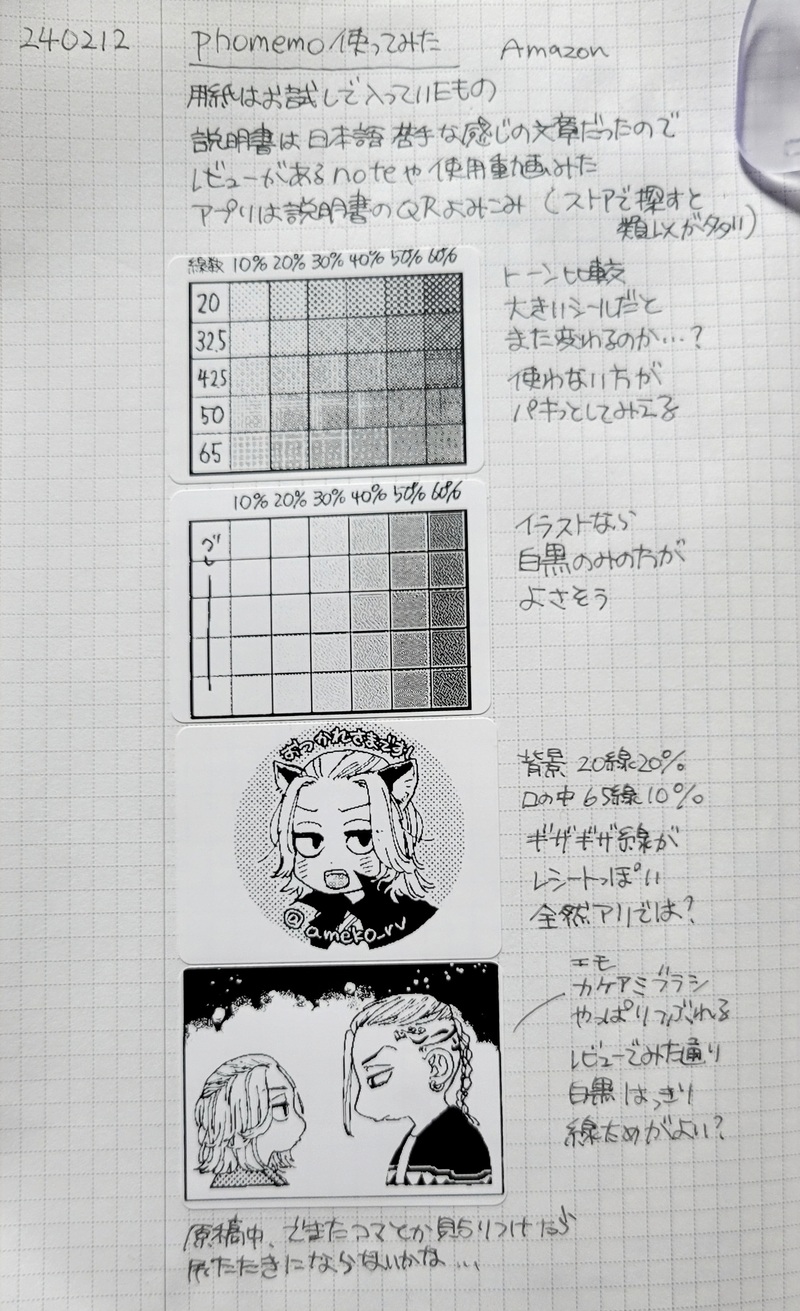 240212 phomemo使ってみた Amazon
用紙はお試しで入っていたもの
説明書は日本語苦手な感じの文章だったので
レビューがあるnoteや使用動画みた
アプリは説明書のQRよみこみ (ストアで探すと
類似が多い)
線数 10% 20% 30% 40% 50% 60%
20
32.5
42.5
50
65
トーン比較
大きいシールだと
また変わるのか…?
使わない方が
パキっとしてみえる
10% 20% 30% 40% 50% 60%
グレー
イラストなら
白黒のみの方が
よさそう
おつかれさまです!
@ameko_rv
背景 20線20%
口の中 65線10%
ギザギザ線が
レシートっぽい
全然アリでは?
エモ
カケアミブラシ
やっぱりつぶれる
レビューでみた通り
白黒はっきり
線太めがよい?
原稿中、できたコマとか貼りつけたら
尻たたきにならないかな…